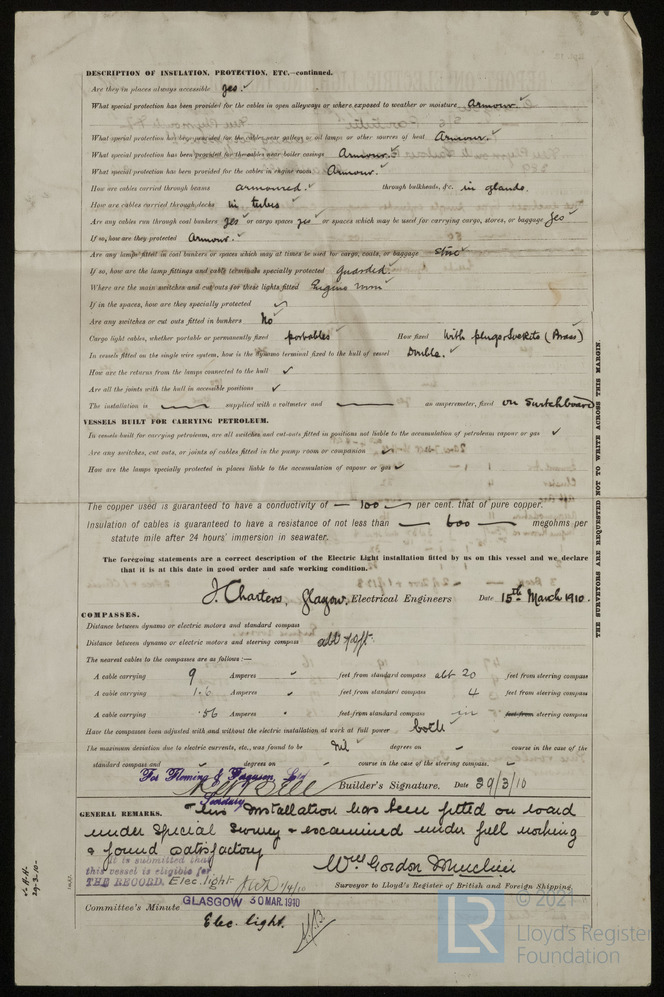 DESCRIPTION OF INSULATION, PROTECTION, ETC.—continued.
Are they in places always accessible yes.
What special protection has been provided for the cables in open alleyways or where exposed to weather or moisture Armour.
What special protection has been provided for the cables near galleys or oil lamps or other sources of heat Armour.
What special protection has been provided for the cables near boiler casings Armour.
What special protection has been provided for the cables in engine room Armour.
How are cables carried through beams armoured. through bulkheads, &c. in glands.
How are cables carried through decks in tubes
Are any cables run through coal bunkers yes or cargo spaces yes or spaces which may be used for carrying cargo, stores, or baggage yes
If so, how are they protected Armour.
Are any lamps fitted in coal bunkers or spaces which may at times be used for cargo, coals, or baggage
If so, how are the lamp fittings and cable terminals specially protected guarded.
Where are the main switches and cut outs for these lights fitted Engine room
If in the spaces, how are they specially protected
Are any switches or cut outs fitted in bunkers No
Cargo light cables, whether portable or permanently fixed portables How fixed With plugs & sockets (Brass)
In vessels fitted on the single wire system, how is the dynamo terminal fixed to the hull of vessel Double.
How are the returns from the lamps connected to the hull
Are all the joints with the hull in accessible positions
The installation is supplied with a voltmeter and an amperemeter, fixed on Switchboard
VESSELS BUILT FOR CARRYING PETROLEUM.
In vessels built for carrying petroleum, are all switches and cut-outs fitted in positions not liable to the accumulation of petroleum vapour or gas
Are any switches, cut outs, or joints of cables fitted in the pump room or companion
How are the lamps specially protected in places liable to the accumulation of vapour or gas
The copper used is guaranteed to have a conductivity of — 100 — per cent. that of pure copper.
Insulation of cables is guaranteed to have a resistance of not less than — 600 — megohms per
statute mile after 24 hours' immersion in seawater.
The foregoing statements are a correct description of the Electric Light installation fitted by us on this vessel and we declare
that it is at this date in good order and safe working condition.
J. Charters, Glasgow. Electrical Engineers Date 15th March 1910.
COMPASSES.
Distance between dynamo or electric motors and standard compass
Distance between dynamo or electric motors and steering compass abt
The nearest cables to the compasses are as follows:—
A cable carrying 9 Amperes feet from standard compass abt 20 feet from steering compass
A cable carrying 1.6 Amperes feet from standard compass 4 feet from steering compass
A cable carrying .56 Amperes feet from standard compass in feet from steering compass
Have the compasses been adjusted with and without the electric installation at work at full power both
The maximum deviation due to electric currents, etc., was found to be Nil degrees on course in the case of the
standard compass and degrees on course in the case of the steering compass.
For Fleming & Ferguson, Ltd
Secretary Builder's Signature. Date 29/3/10
GENERAL REMARKS. This Installation has been fitted on board
under Special Survey & examined under full working
& found satisfactory
It is submitted that
this vessel is eligible for
THE RECORD. Elec. light 1/4/10
Wm Gordon
Surveyor to Lloyd's Register of British and Foreign Shipping.
Committee's Minute GLASGOW 30 MAR. 1910
Elec. light.
THE SURVEYORS ARE REQUESTED NOT TO WRITE ACROSS THIS MARGIN.
© 2021
LR
Lloyd's Register
Foundation